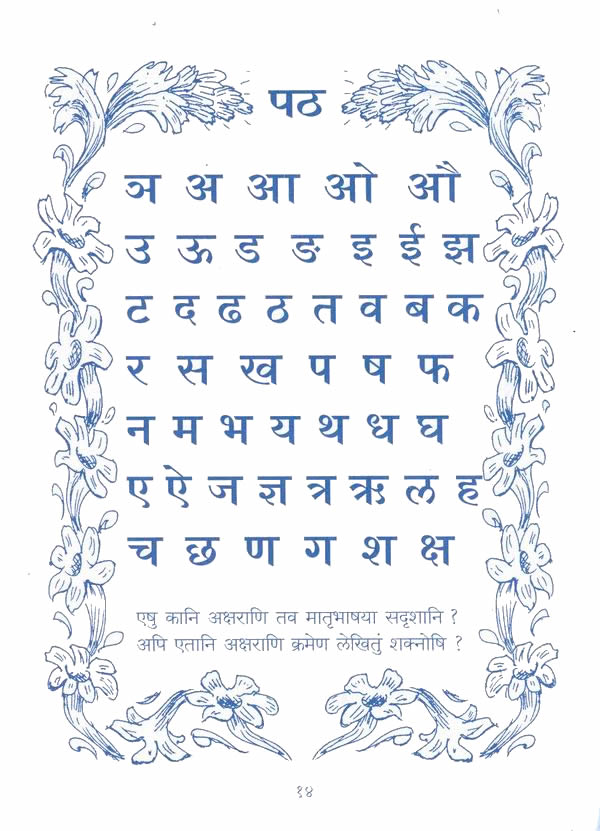 पठ
ञ अ आ ओ औ
उ ऊ ड ङ इ ई झ
ट द ढ ठ त व ब क
र स ख प ष फ
न म भ य थ ध घ
ए ऐ ज ज्ञ त्र ऋ ल ह
च छ ण ग श क्ष
एषु कानि अक्षराणि तव मातृभाषया सदृशानि ?
अपि एतानि अक्षराणि क्रमेण लेखितुं शक्नोषि ?
१४